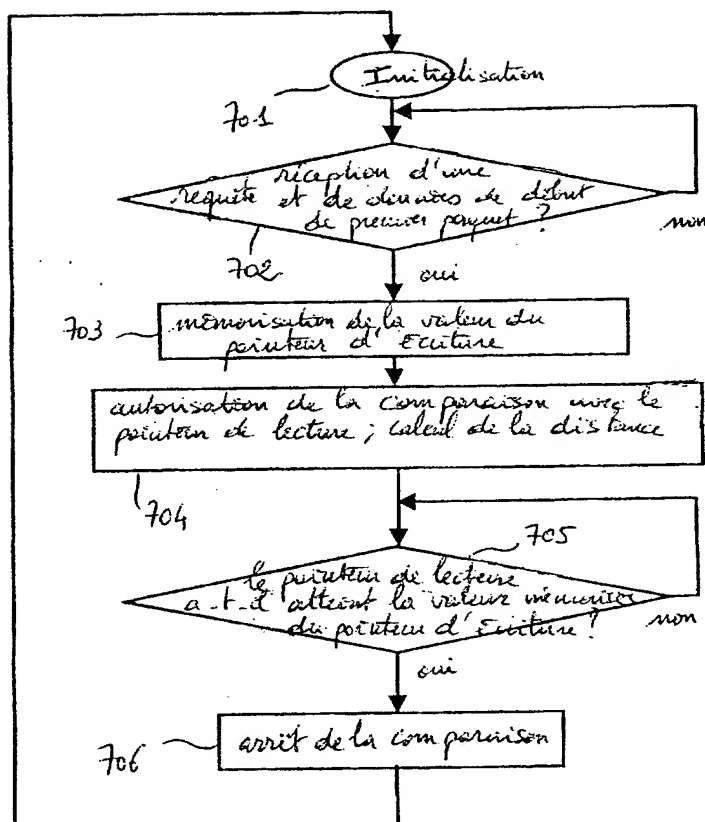 Initialisation
701
réception d'une
requête et de données de début
de premier paquet ?
non
702
oui
703
mémorisation de la valeur du
pointeur d'écriture
autorisation de la comparaison avec le
pointeur de lecture ; calcul de la distance
704
705
le pointeur de lecture
a-t-il atteint la valeur mémorisée
du pointeur d'écriture ?
non
oui
706
arrêt de la comparaison